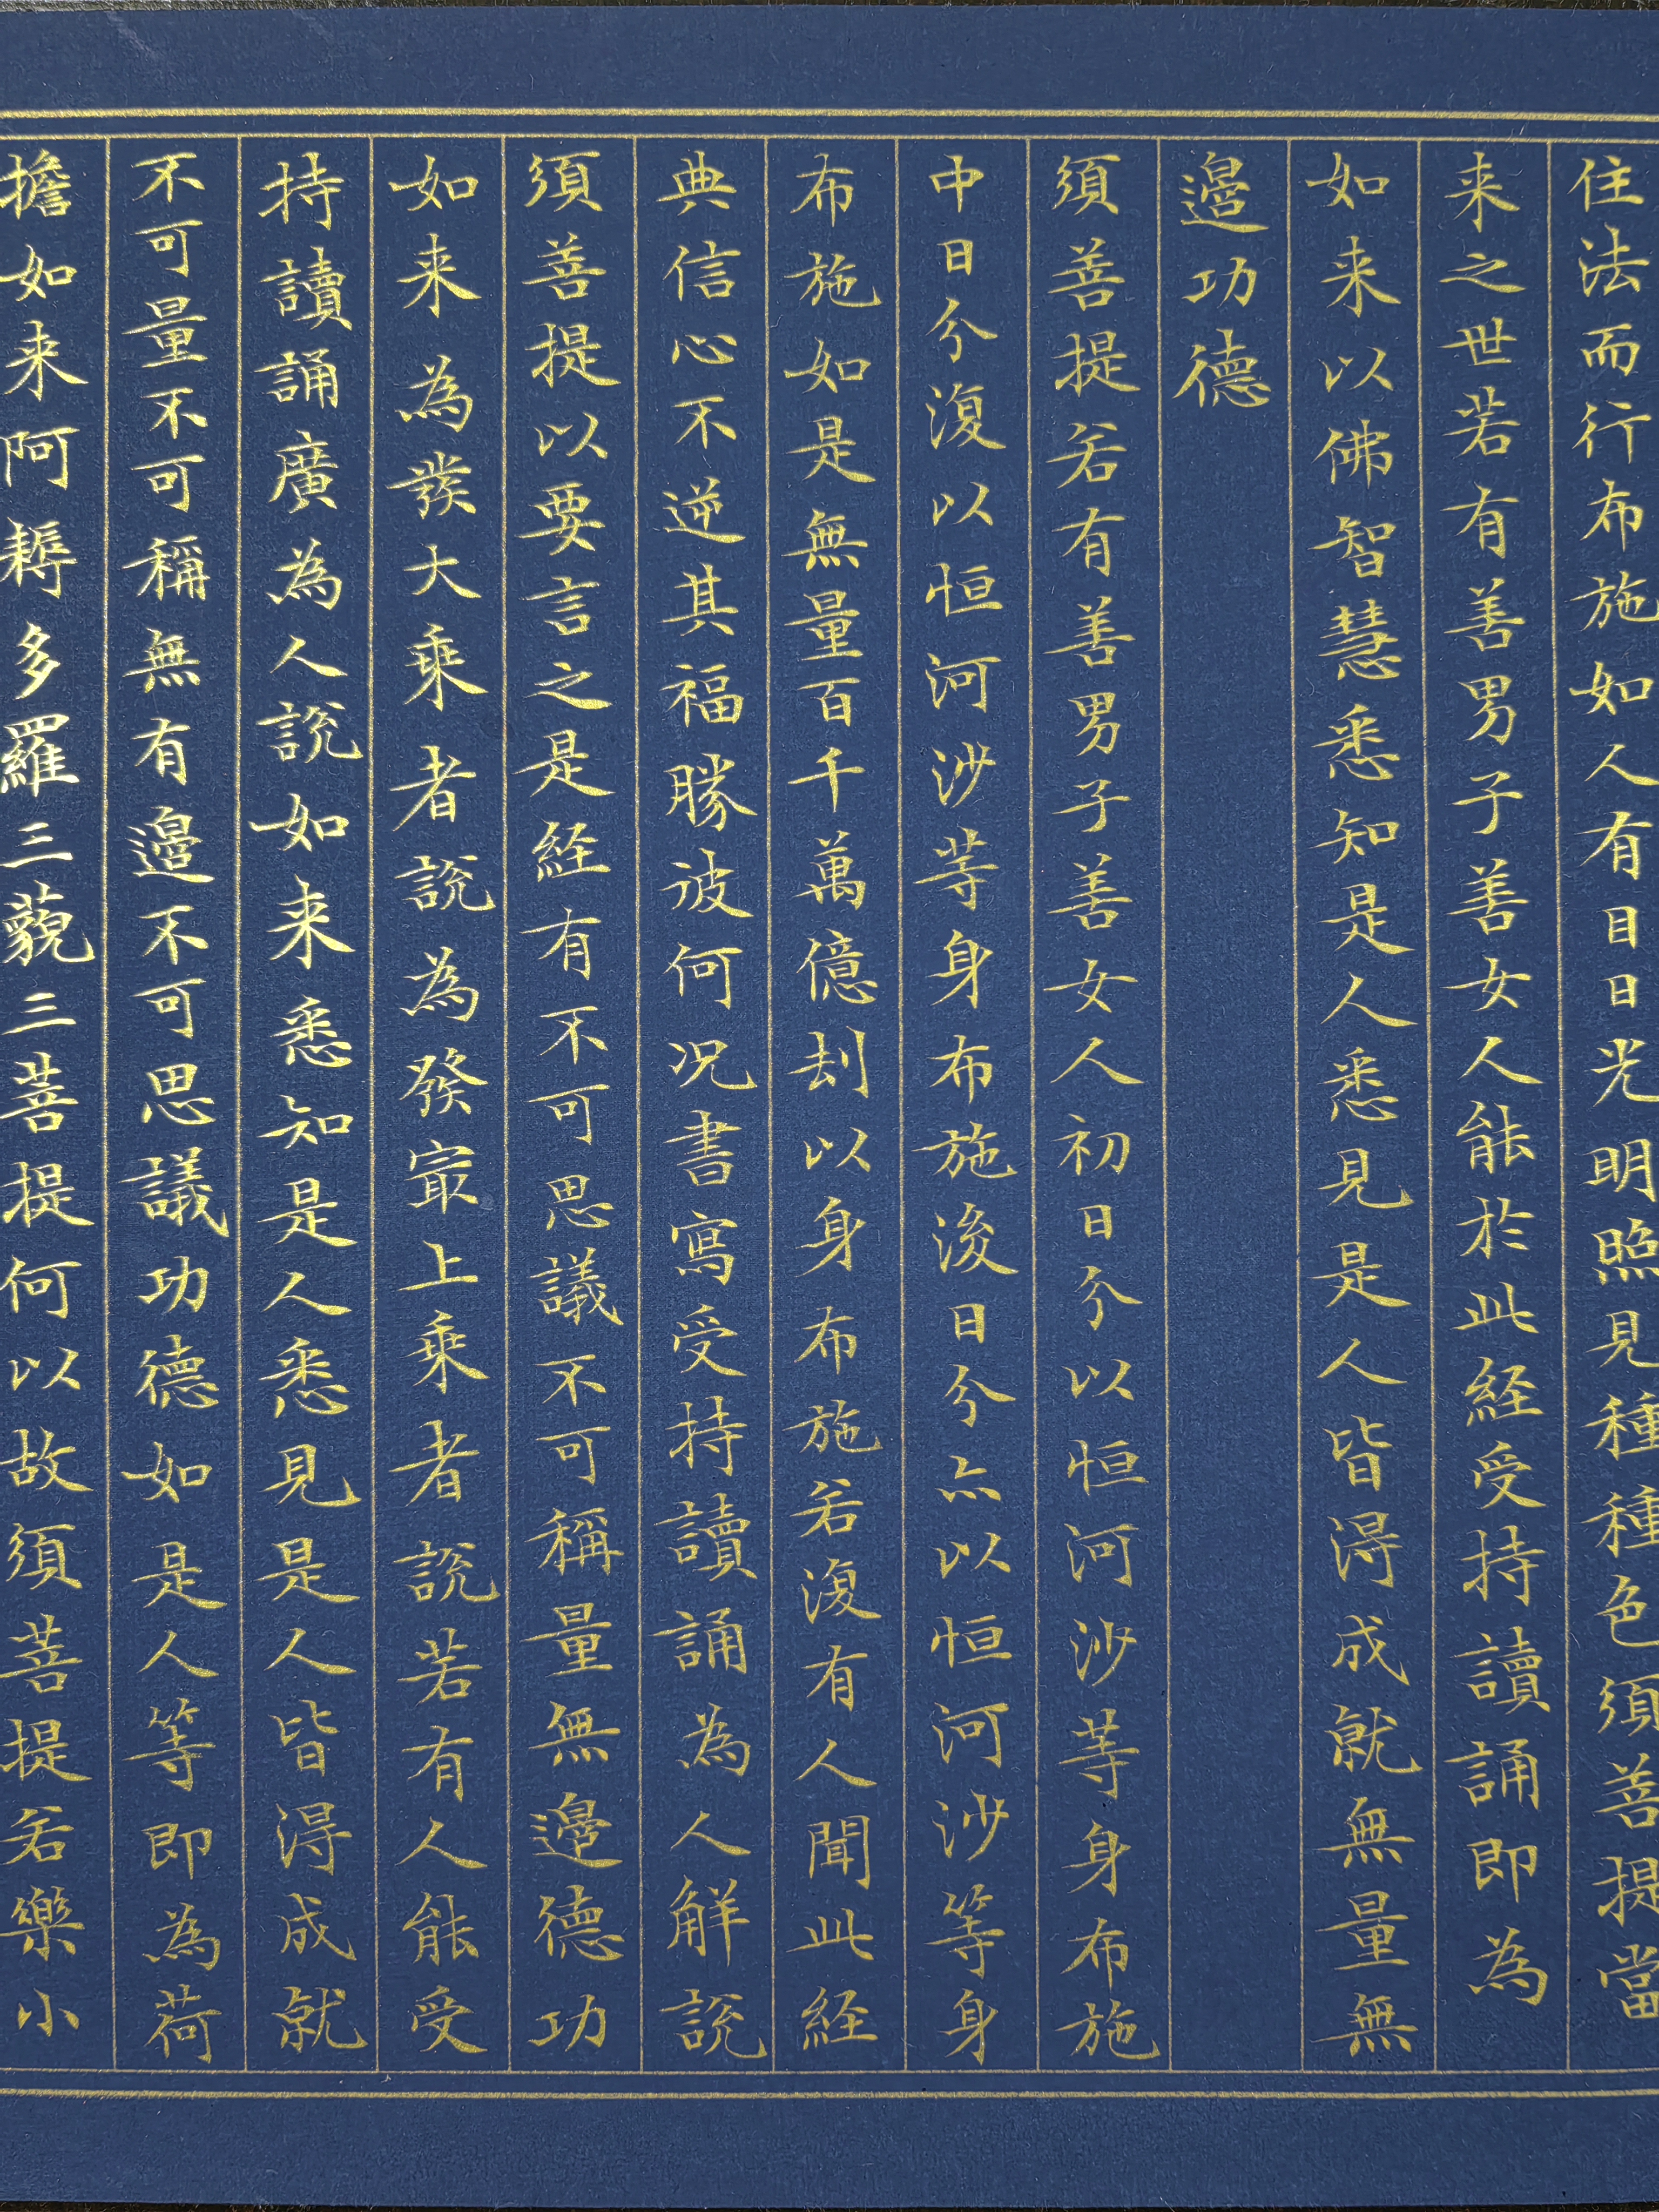 住法而行布施如人有目日光明照見種種色須菩提當
来之世若有善男子善女人能於此経受持讀誦即為
如来以佛智慧悉知是人悉見是人皆得成就無量無
邊功德
須菩提若有善男子善女人初日分以恒河沙等身布施
中日分復以恒河沙等身布施後日分亦以恒河沙等身
布施如是無量百千萬億劫以身布施若復有人聞此経
典信心不逆其福勝彼何況書寫受持讀誦為人解説
須菩提以要言之是経有不可思議不可稱量無邊德功
如来為發大乘者説為發冣上乘者説若有人能受
持讀誦廣為人説如来悉知是人悉見是人皆得成就
不可量不可稱無有邊不可思議功德如是人等即為荷
擔如来阿耨多羅三藐三菩提何以故須菩提若樂小